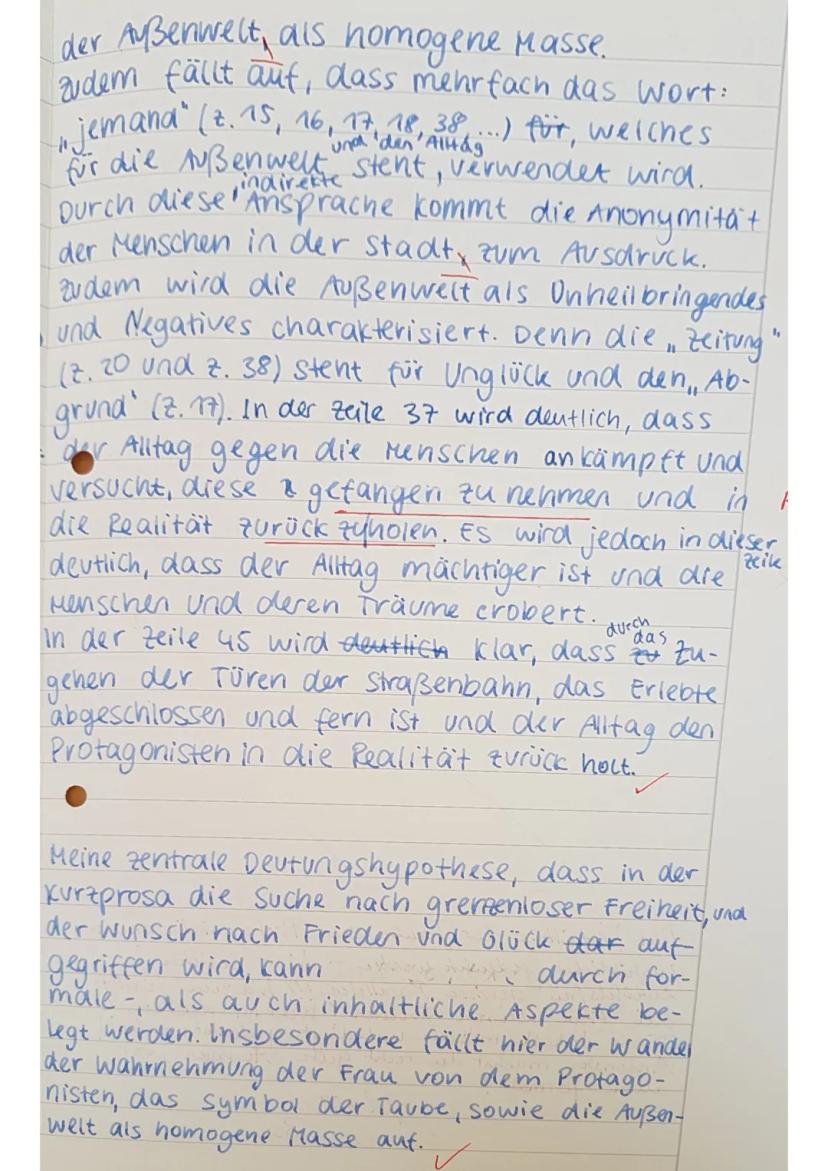 der Außenwelt, als homogene Masse.
Zudem fällt auf, dass mehrfach das Wort:
„jemand" (Z. 15, 16, 17, 18, 38 ...) für, welches
und den Alltag
für die Außenwelt steht, verwendet wird.
indirekte
Durch diese Ansprache kommt die Anonymität
der Menschen in der Stadt, zum Ausdruck.
Zudem wird die Außenwelt als Unheilbringendes
und Negatives charakterisiert. Denn die „Zeitung"
(Z. 20 und Z. 38) steht für Unglück und den „Ab-
grund" (Z. 17). In der Zeile 37 wird deutlich, dass
der Alltag gegen die Menschen ankämpft und
versucht, diese gefangen zu nehmen und in
die Realität zurück zuholen. Es wird jedoch in dieser
Zeile
deutlich, dass der Alltag mächtiger ist und die
Menschen und deren Träume erobert.
durch
das
In der Zeile 45 wird deutlich klar, dass zu Zu-
gehen der Türen der Straßenbahn, das Erlebte
abgeschlossen und fern ist und der Alltag den
Protagonisten in die Realität zurück holt.
Meine zentrale Deutungshypothese, dass in der
Kurzprosa die Suche nach grenzenloser Freiheit, und
der Wunsch nach Frieden und Glück dar auf-
gegriffen wird, kann durch for-
male-, als auch inhaltliche Aspekte be-
legt werden. Insbesondere fällt hier der Wandel
der Wahrnehmung der Frau von dem Protago-
nisten, das Symbol der Taube, sowie die Außen-
welt als homogene Masse auf.